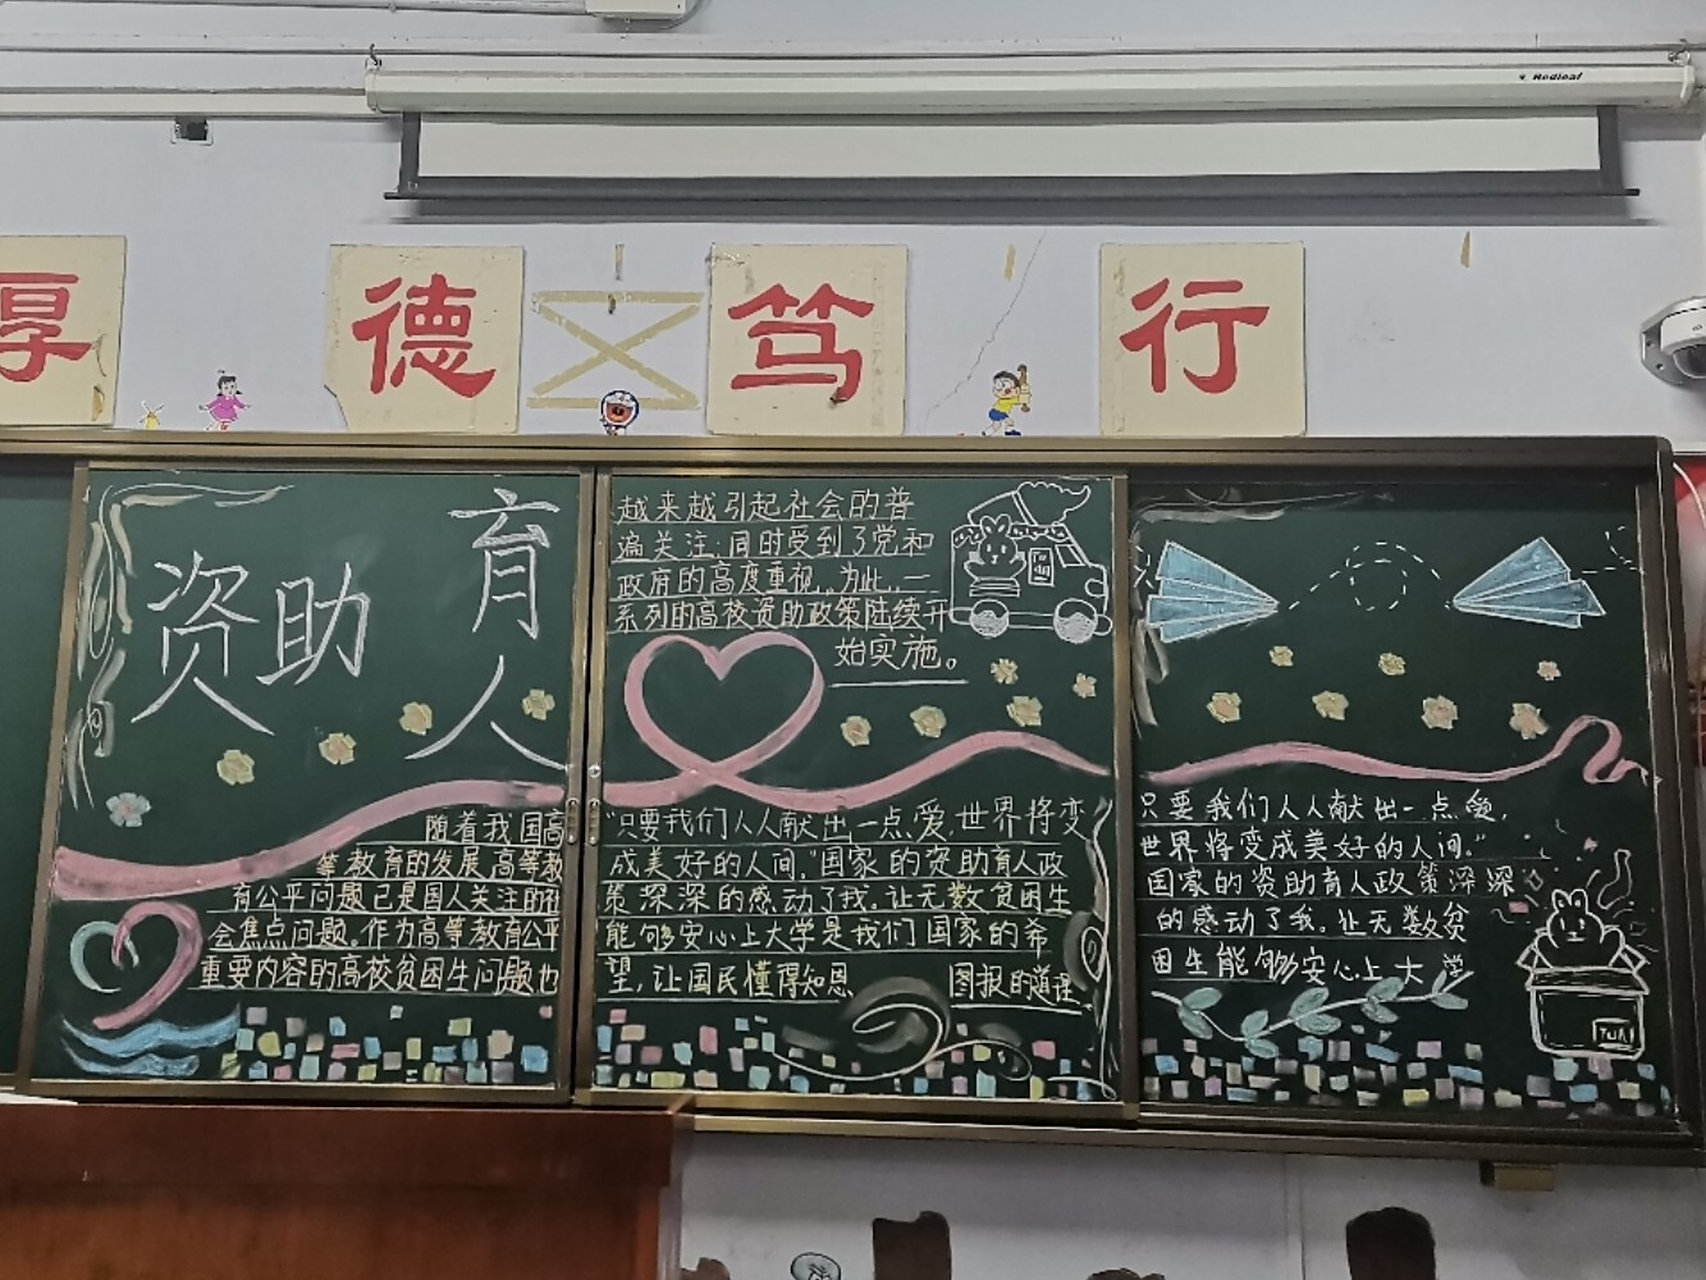 Redleaf
厚 德 笃 行
资助
育人
随着我国高
等教育的发展,高等教
育公平问题已是国人关注的社
会焦点问题。作为高等教育公平
重要内容的高校贫困生问题也
越来越引起社会的普
遍关注;同时受到了党和
政府的高度重视,为此,一
系列的高校资助政策陆续开
始实施。
“只要我们人人献出一点爱,世界将变
成美好的人间。”国家的资助育人政
策深深的感动了我。让无数贫困生
能够安心上大学是我们国家的希
望,让国民懂得知恩 图报的道理
只要我们人人献出一点爱,
世界将变成美好的人间。”
国家的资助育人政策深深
的感动了我。让无数贫
困生能够安心上大学